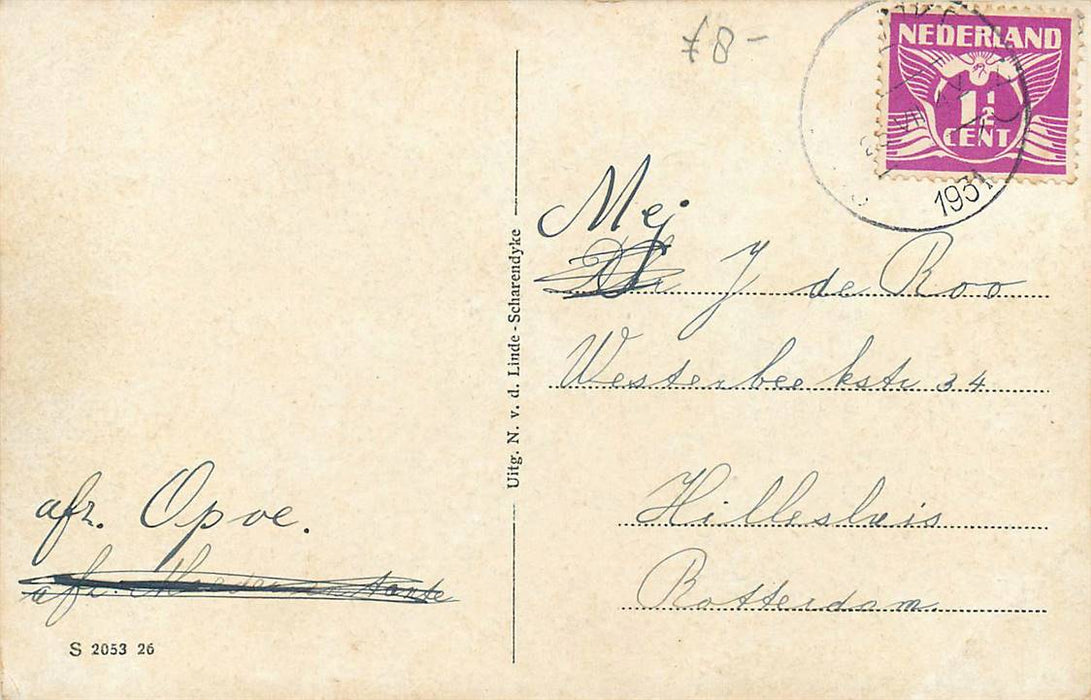 f 8-
NEDERLAND
1½
CENT
1931
Mej
J de Roo
Westerbeekstr 34
Hillesluis
Rotterdam.
Uitg. N. v. d. Linde - Scharendyke
afz. Opoe.
afz. Moeder Tante
S 2053 26